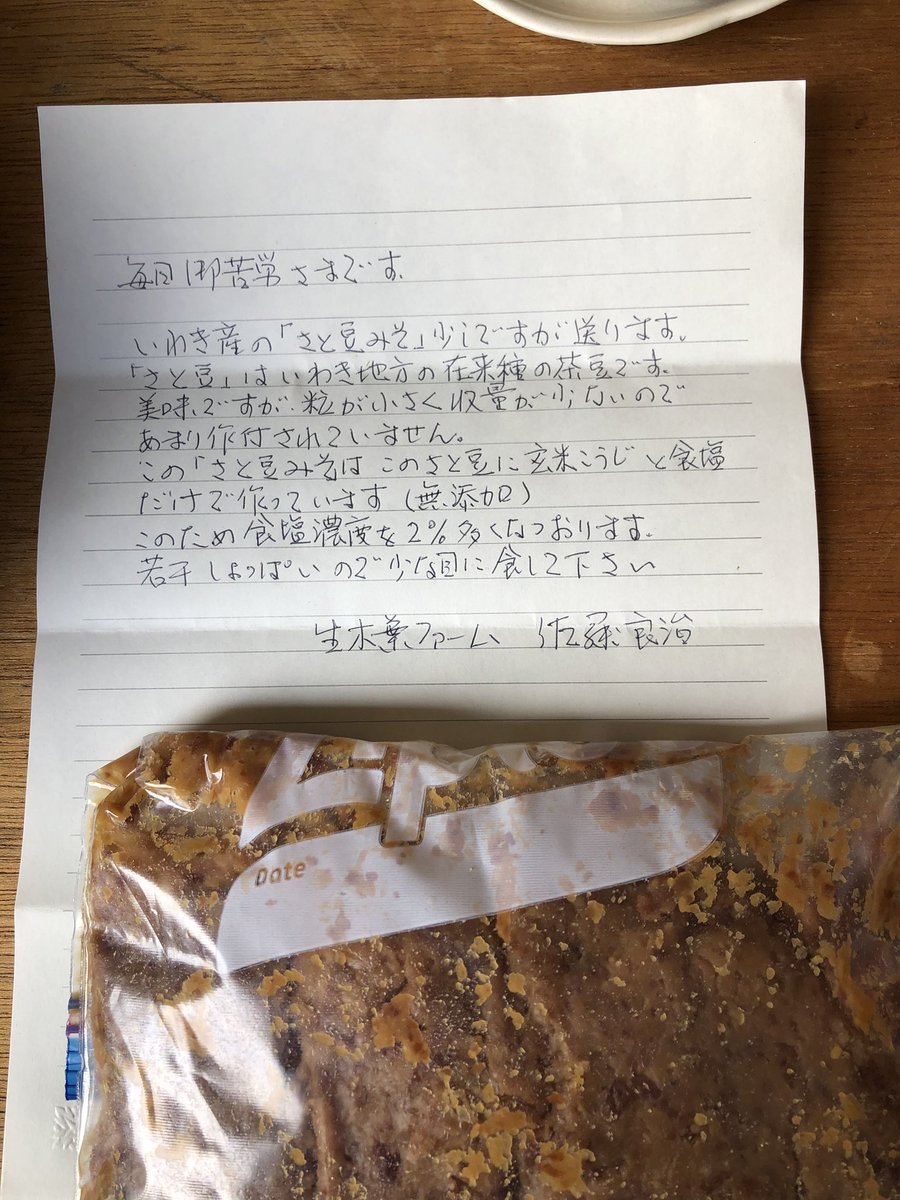 毎日御苦労さまです。
いわき産の「さと豆みそ」少しですが送ります。
「さと豆」はいわき地方の在来種の茶豆です。
美味ですが、粒が小さく収量が少ないので
あまり作付されていません。
この「さと豆みそ」は このさと豆に玄米こうじと食塩
だけで作っています（無添加）
このため食塩濃度を2%多くなっております。
若干しょっぱいので少な目に食して下さい
生木葉ファーム 佐藤良治
Date